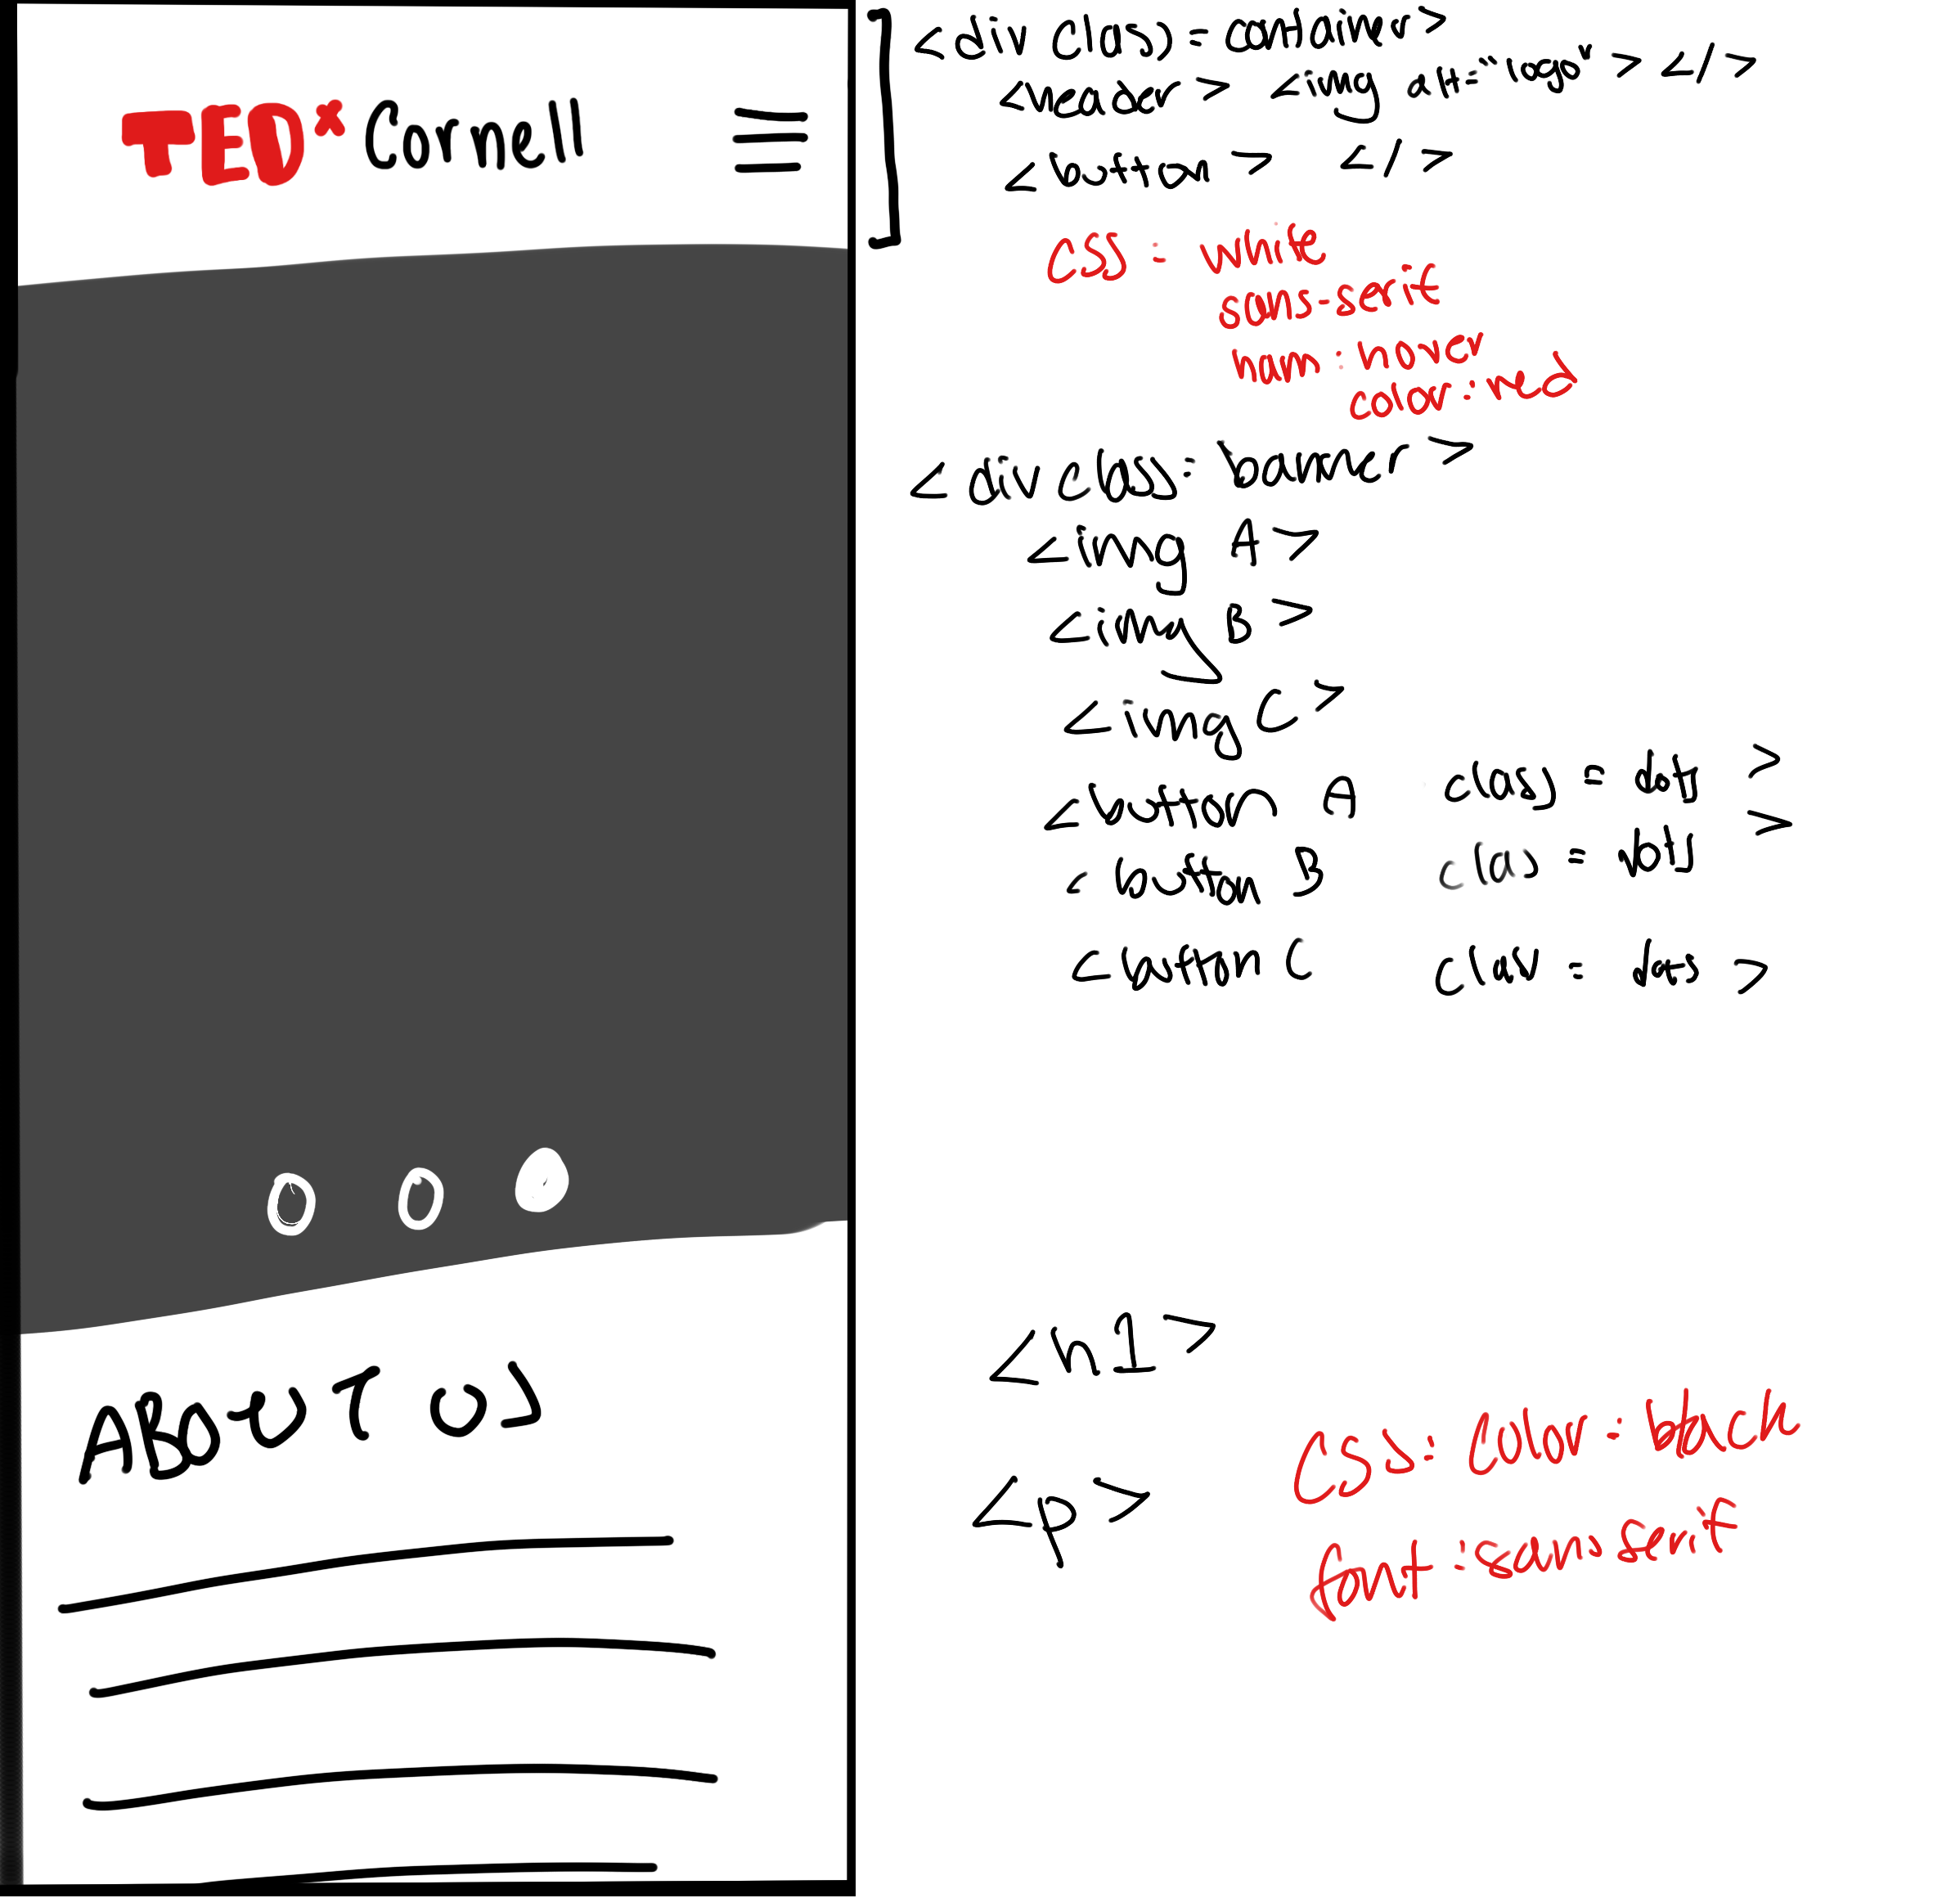 TEDx Cornell
<div class = container>
<header> <img alt="logo" > </>
<button> </>
CSS: white
sans-serif
ham: hover
color: red
<div class: banner>
<img A>
<img B>
<img C>
<button A class = dots >
<button B class = dots >
<button C class = dots >
ABOUT US
<h1>
<p>
CSS: color: black
font: sans serif